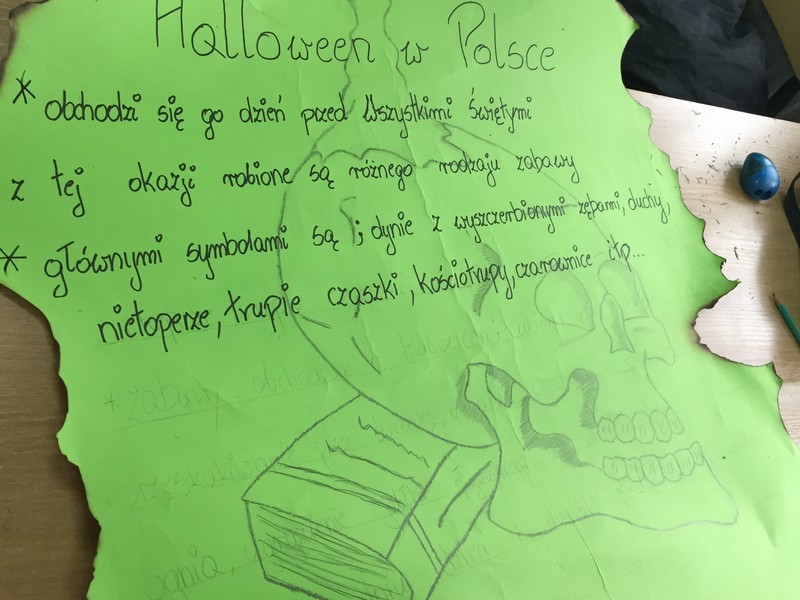 Halloween w Polsce
* obchodzi się go dzień przed Wszystkimi Świętymi
z tej okazji robione są różnego rodzaju zabawy
* głównymi symbolami są ; dynie z wyszczerbionymi zębami, duchy,
nietoperze, trupie czaszki, kościotrupy, czarownice itp...
* zabawy obchodzone w Halloween